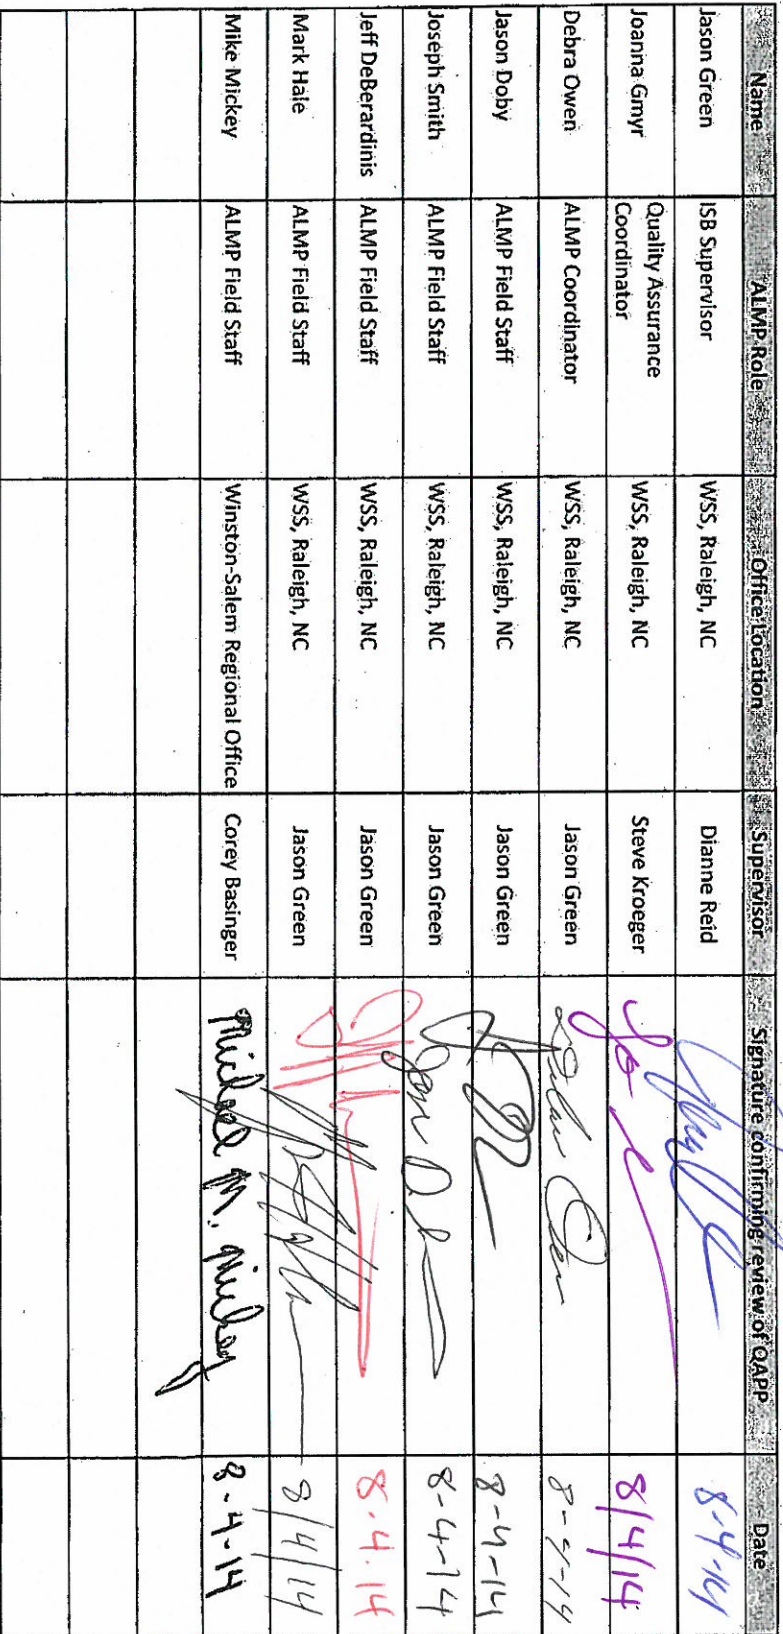 Name ALMP Role Office Location Supervisor Signature confirming review of QAPP Date
Jason Green ISB Supervisor WSS, Raleigh, NC Dianne Reid 8-4-14
Joanna Gmyr Quality Assurance Coordinator WSS, Raleigh, NC Steve Kroeger 8/4/14
Debra Owen ALMP Coordinator WSS, Raleigh, NC Jason Green Debra Owen 8-4-14
Jason Doby ALMP Field Staff WSS, Raleigh, NC Jason Green 8-4-14
Joseph Smith ALMP Field Staff WSS, Raleigh, NC Jason Green 8-4-14
Jeff DeBerardinis ALMP Field Staff WSS, Raleigh, NC Jason Green 8.4.14
Mark Hale ALMP Field Staff WSS, Raleigh, NC Jason Green 8/4/14
Mike Mickey ALMP Field Staff Winston-Salem Regional Office Corey Basinger Michael M. Mickey 8-4-14